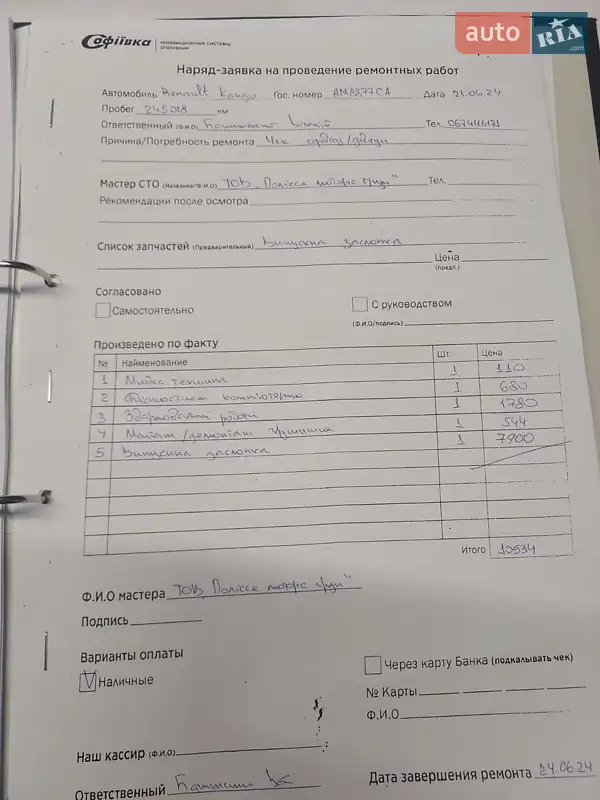 auto RIA .com
Софіївка ИННОВАЦИОННЫЕ СИСТЕМЫ ОТОПЛЕНИЯ
Наряд-заявка на проведение ремонтных работ
Автомобиль Renault Kango Гос. номер АМ8877СА Дата 21.06.24
Пробег 245018 км
Ответственный (Ф.И.О) Віталій Тел. 067446171
Причина/Потребность ремонта Чек
Мастер СТО (Название/Ф.И.О) ТОВ "Полісся моторс груп" Тел.
Рекомендации после осмотра
Список запчастей (Предварительный) Випускна заслонка
Цена
(предл.)
Согласовано
Самостоятельно
С руководством
(Ф.И.О/подпись)
Произведено по факту
№ Найменование Шт. Цена
1 Мийка техніки 1 110
2 Діагностика комп'ютерна 1 680
3 Зварювальні роботи 1 1780
4 Монтаж/демонтаж глушника 1 544
5 Випускна заслонка 1 7900
Итого 10534
Ф.И.О мастера ТОВ "Полісся моторс груп"
Подпись
Варианты оплаты
V Наличные
Через карту Банка (подкалывать чек)
№ Карты
Ф.И.О.
Наш кассир (Ф.И.О)
Ответственный
Дата завершения ремонта 24.06.24